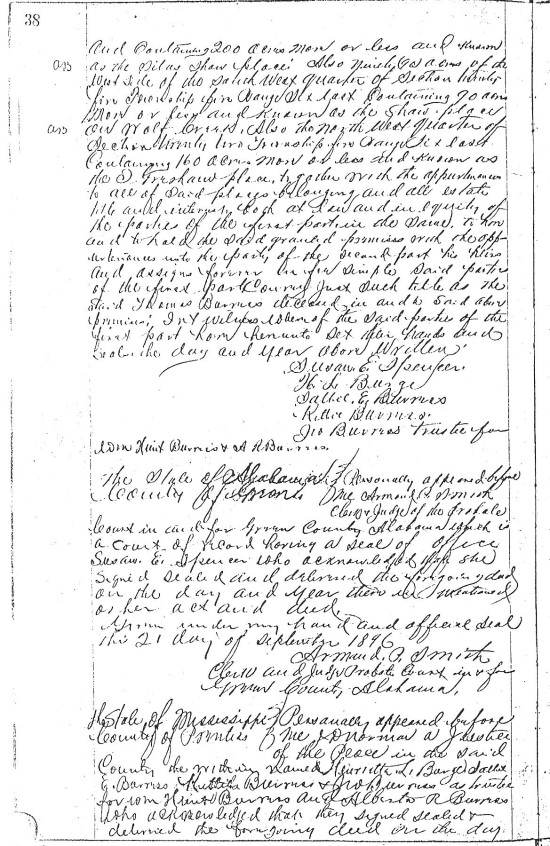 38
and Containing 200 acres more or less and Known
as the Silas Shaw place. Also Ninety acres of the
West side of the South West quarter of Section twenty
five Township five Range Six East Containing 90 acres
More or less and Known as the Shaw place
on Wolf Creek, Also the North West quarter of
Section Twenty two Township five Range Six East
Containing 160 acres more or less and Known as
the place, together with the appurtenances
to all of said places belonging and all estate
title and interest both at law and in equity of
the parties of the first part in the same, to have
and to hold the said granted premises with the app-
urtenances unto the party of the second part his heirs
and assigns forever in fee simple said parties
of the first part Convey just such title as the
said Thomas Burress deceased in and to said above
premises; In witness whereof the said parties of the
first part have hereunto set their hands and
seals the day and year above written
Susan E. Spencer
H. L. Barge
Sallie E. Burress
Kittie Burress
Jno Burress trustee for
Tom Hunt Burress & A R Burress
The State of Alabama Personally appeared before
County of Greene me Armand P. Smith
Clerk & Judge of the Probate
Court in and for Green County Alabama which is
a Court of Record having a seal of office
Susan E. Spencer who acknowledged that she
signed sealed and delivered the foregoing deed
on the day and year therein mentioned
as her act and deed.
Given under my hand and official seal
this 21 day of September 1896
Armand P. Smith
Clerk and Judge Probate Court in & for
Green County, Alabama,
The State of Mississippi Personally appeared before
County of me Norman a Justice
of the Peace in the said
County the within named Henrietta L. Barge Sallie
E. Burress Burress & Jno Burress as trustee
for Tom Hunt Burress and Alberto R Burress
who acknowledged that they signed sealed &
delivered the foregoing deed on the day